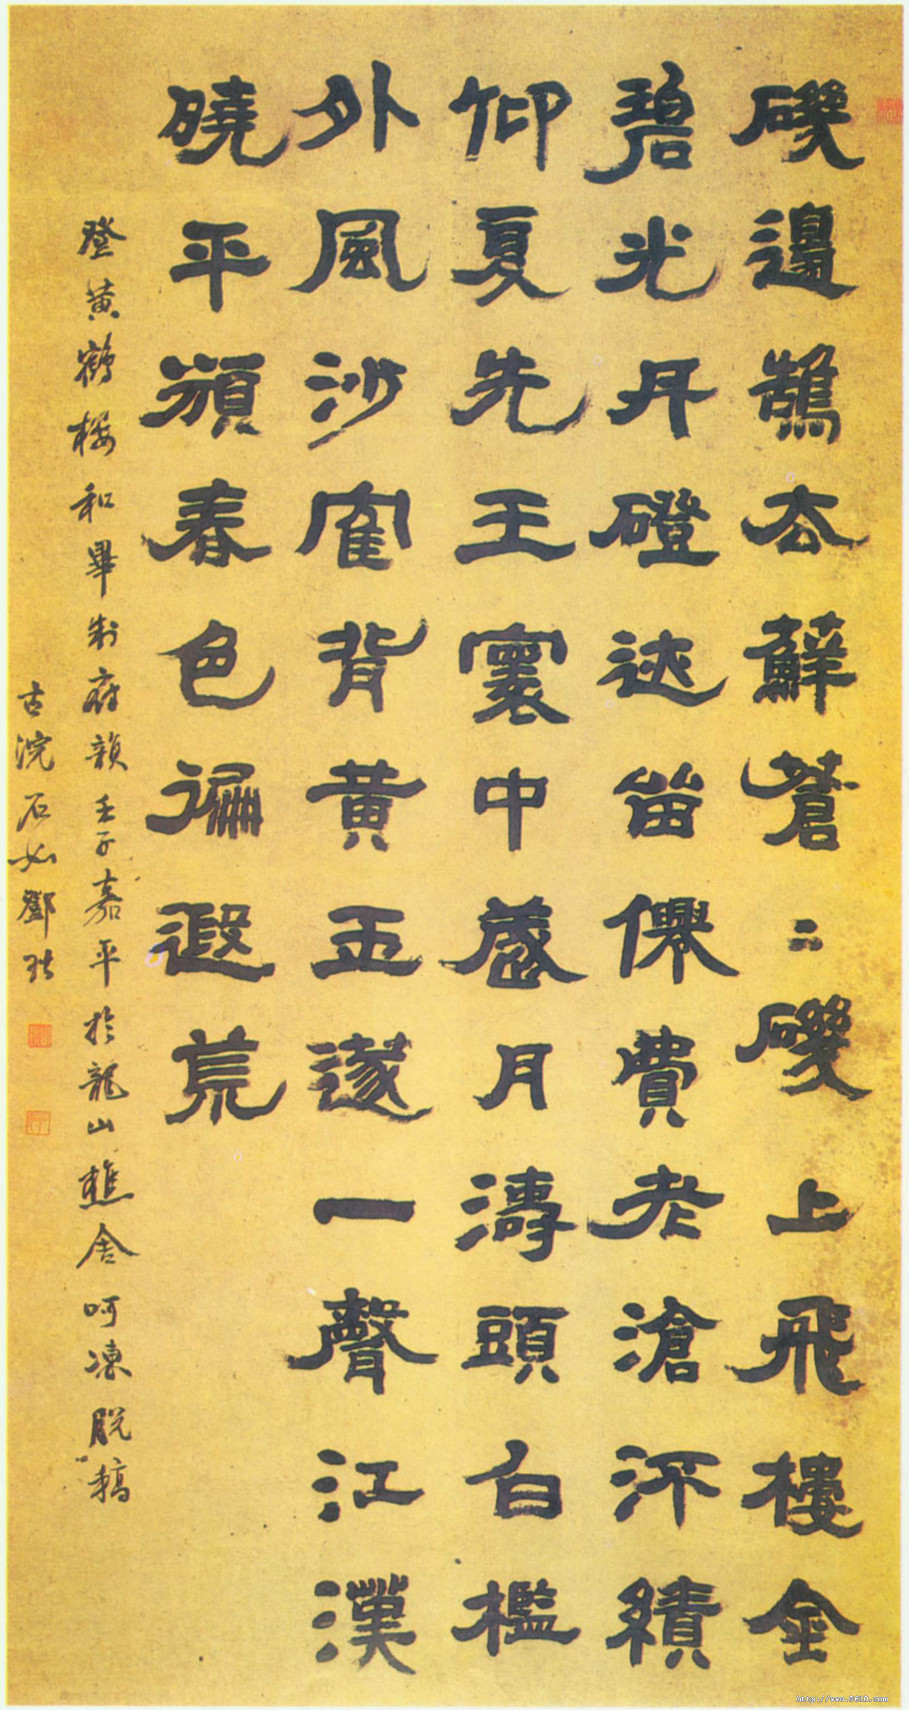 磯邊鵠去蘚蒼〻磯上飛樓金
碧光丹磴迹留僊費老滄沔績
仰夏先王寰中歲月濤頭白檻
外風沙隺背黃玉邃一聲江漢
曉平春色徧遐荒
登黃鶴樓和畢制府韻壬子嘉平於龍山樵舍呵凍脱稿
古浣石如鄧琰
http://www.9610.com